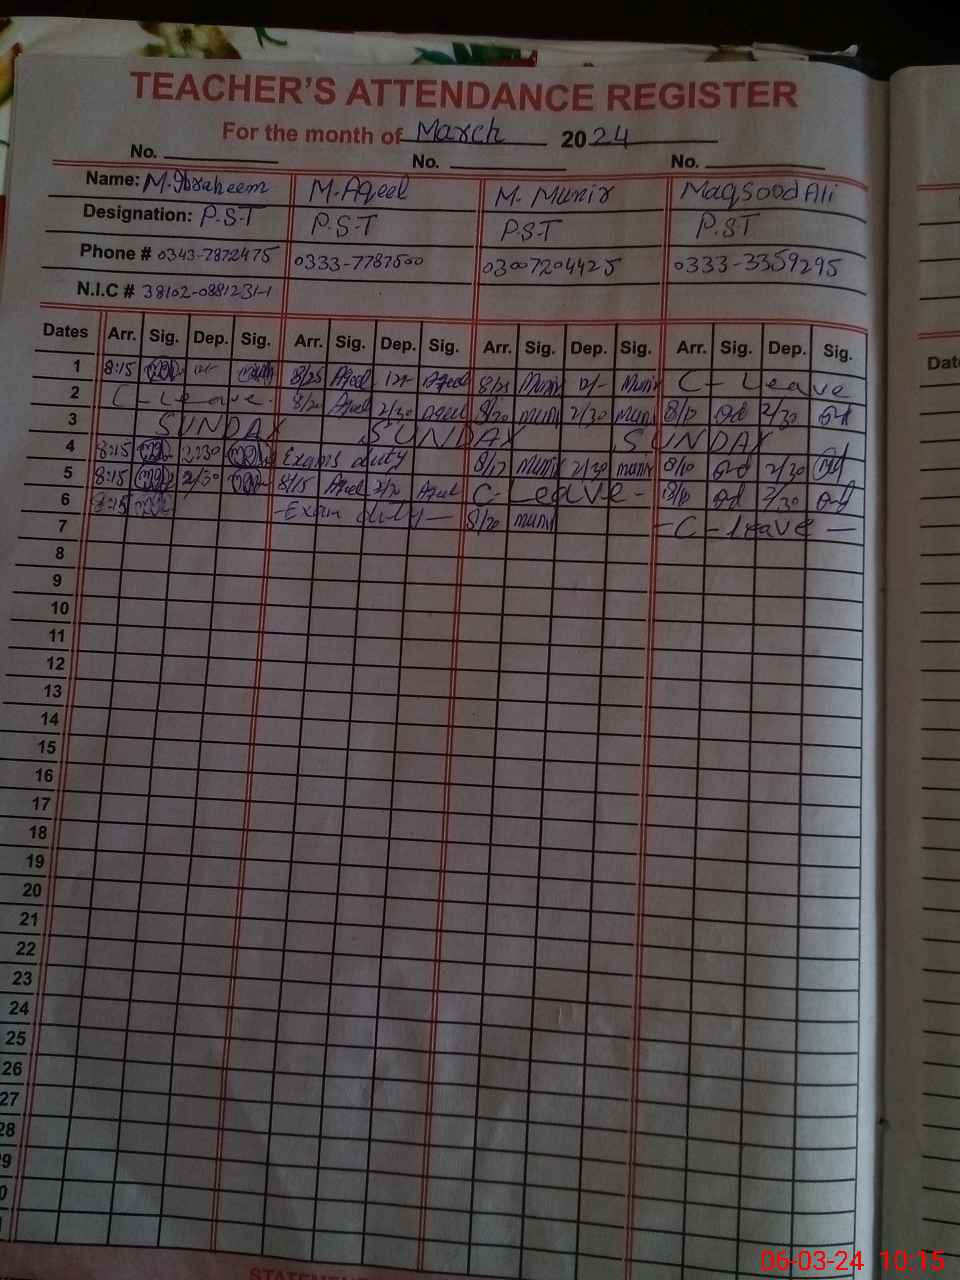 TEACHER'S ATTENDANCE REGISTER
For the month of March 2024
No. No. No.
Name: M. Ibraheem M. Aqeel M. Munir Maqsood Ali
Designation: P.S.T P.S.T P.S.T P.S.T
Phone # 0343-7872475 0333-7787500 03007204425 0333-3359295
N.I.C # 38102-0881231-1
Dates Arr. Sig. Dep. Sig. Arr. Sig. Dep. Sig. Arr. Sig. Dep. Sig. Arr. Sig. Dep. Sig.
1 8:15 12/- 8/25 Aqeel 12/- Aqeel 8/25 Munir 12/- Munir C-Leave
2 C-Leave. 8/20 Aqeel 2/30 Aqeel 8/20 Muni 2/30 Muni 8/12 2/30
3 SUNDAY SUNDAY SUNDAY
4 8:15 2:30 Exams duty 8/12 Munir 2/30 Munir 8/10 2/30
5 8:15 2/30 8/15 Aqeel Aqeel C-Leave- 2/30
6 8:15 -Exam duty- 8/20 Muni -C-Leave-
7
8
9
10
11
12
13
14
15
16
17
18
19
20
21
22
23
24
25
26
27
28
9
0
Dat
06-03-24 10:15